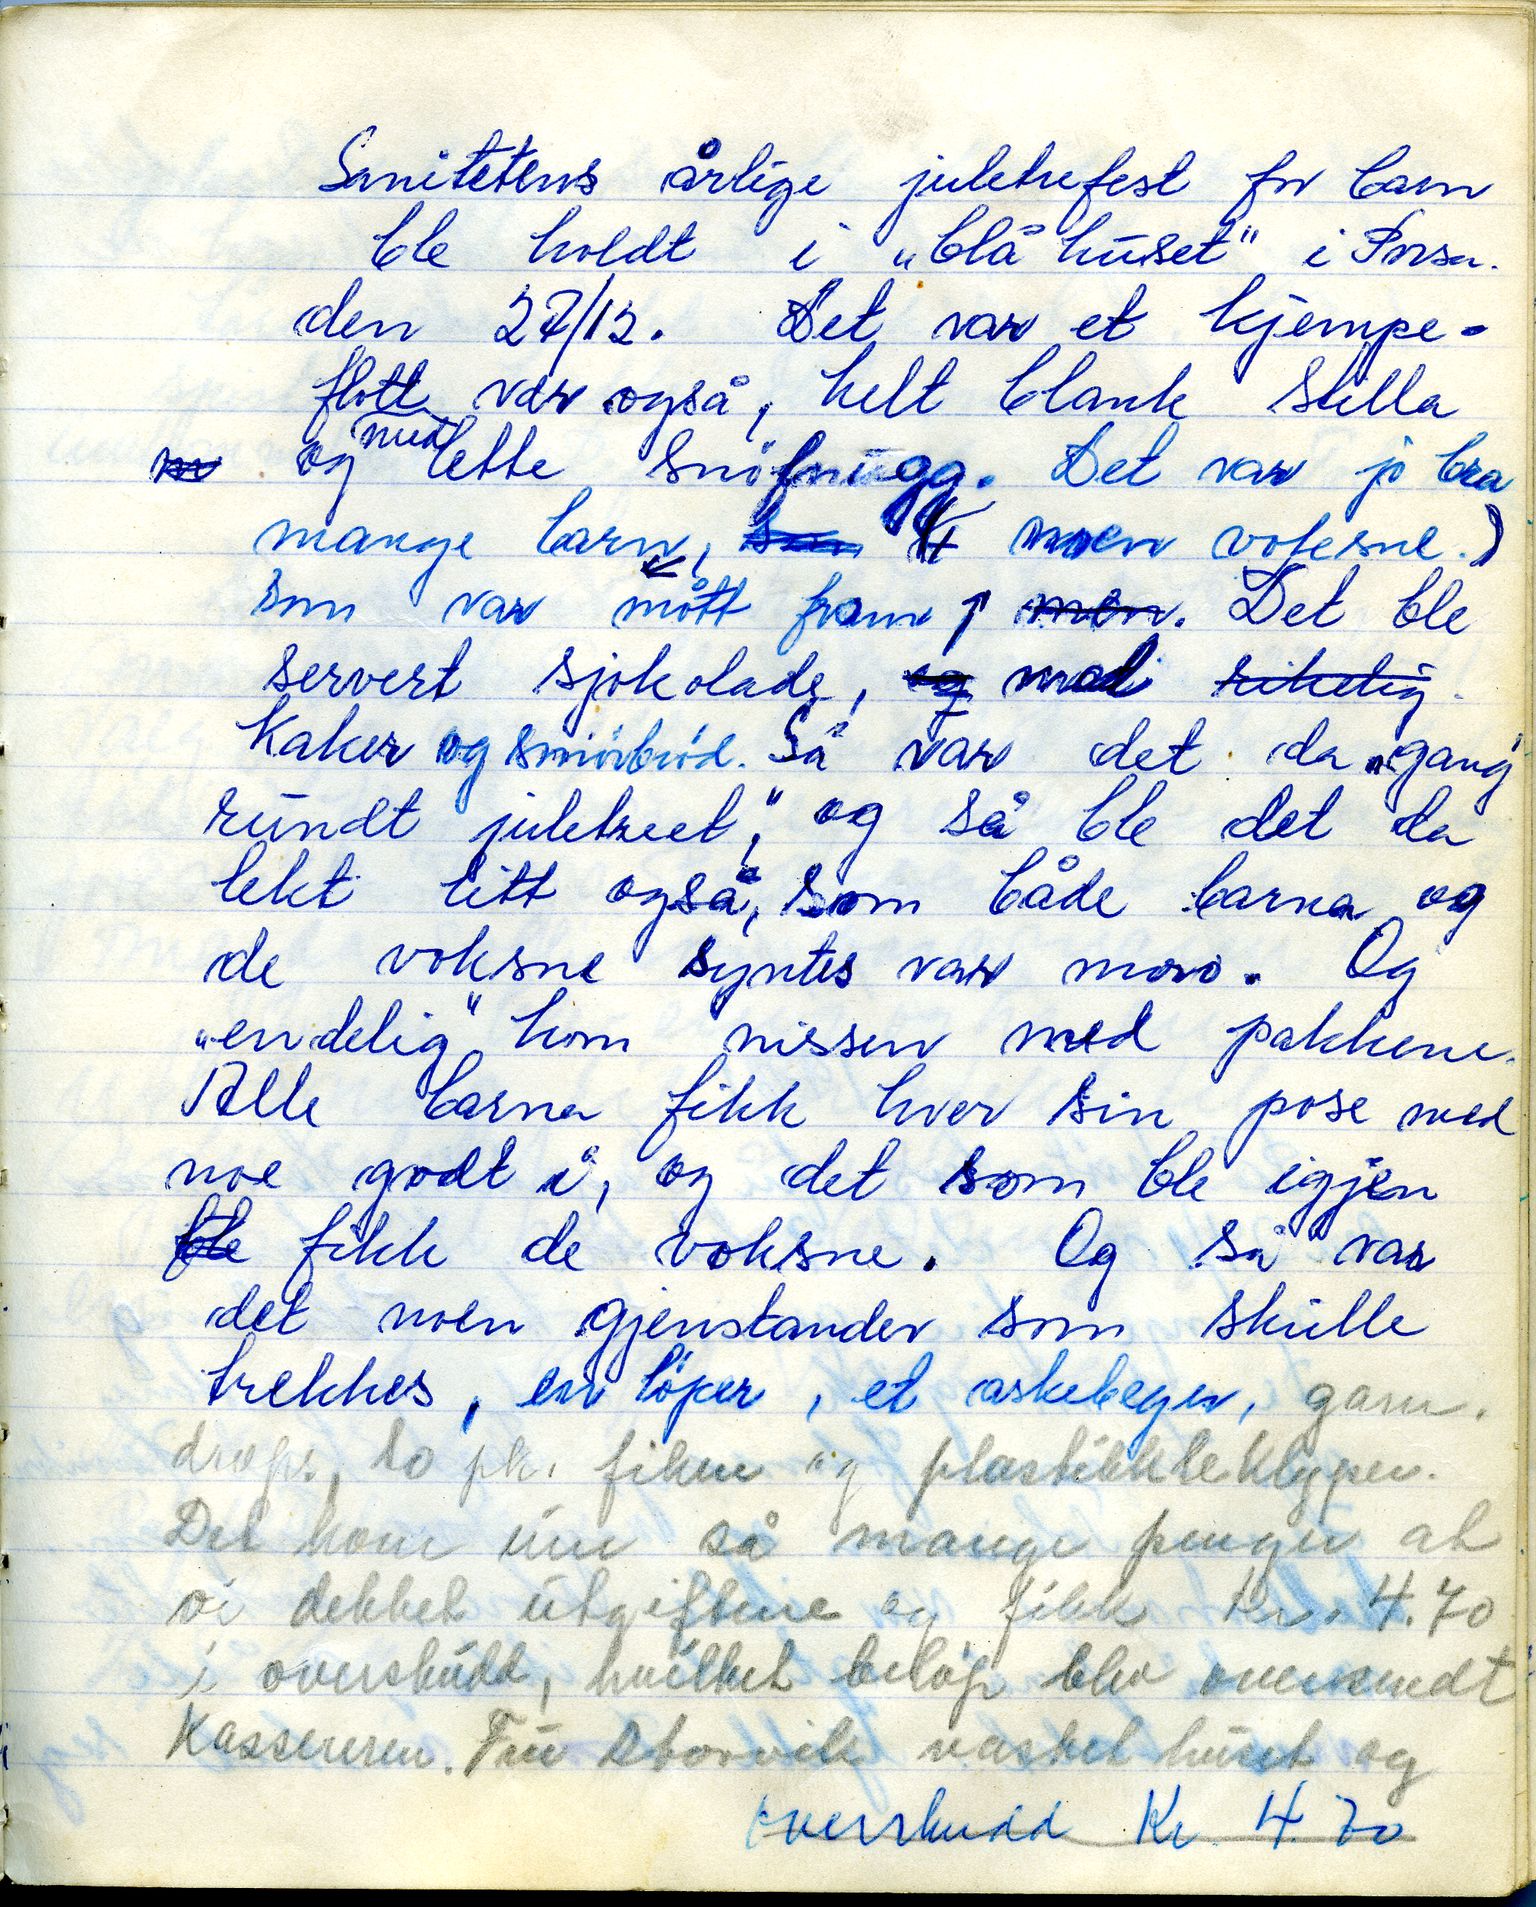 Sanitetens årlige juletrefest for barn
ble holdt i „blå huset" i Porsa.
den 27/12. Det var et kjempe-
flott vær også, helt blank stilla
og med lette snöfnugg. Det var jo bra
mange barn, som 4 noen voksne.)
som var mött fram men. Det ble
servert sjokolade, og med rikelig
Kaker og smörbröd. Så var det da „gang
rundt juletreet", og så ble det da
lekt litt også, som både barna og
de voksne syntes var moro. Og
„endelig" kom nissen med pakkene.
Alle barna fikk hver sin pose med
noe godt i, og det som ble igjen
ble fikk de voksne. Og så var
det noen gjenstander som skulle
trekkes, en löper, et askebeger, garn.
drops, to pk. fiken og plastikkleklyper.
Det kom inn så mange penger at
vi dekket utgiftene og fikk kr. 4.70
i overskudd, hvilket belöp blev oversendt
Kassereren. Fru Storvik vasket huset og
overskudd Kr. 4.70